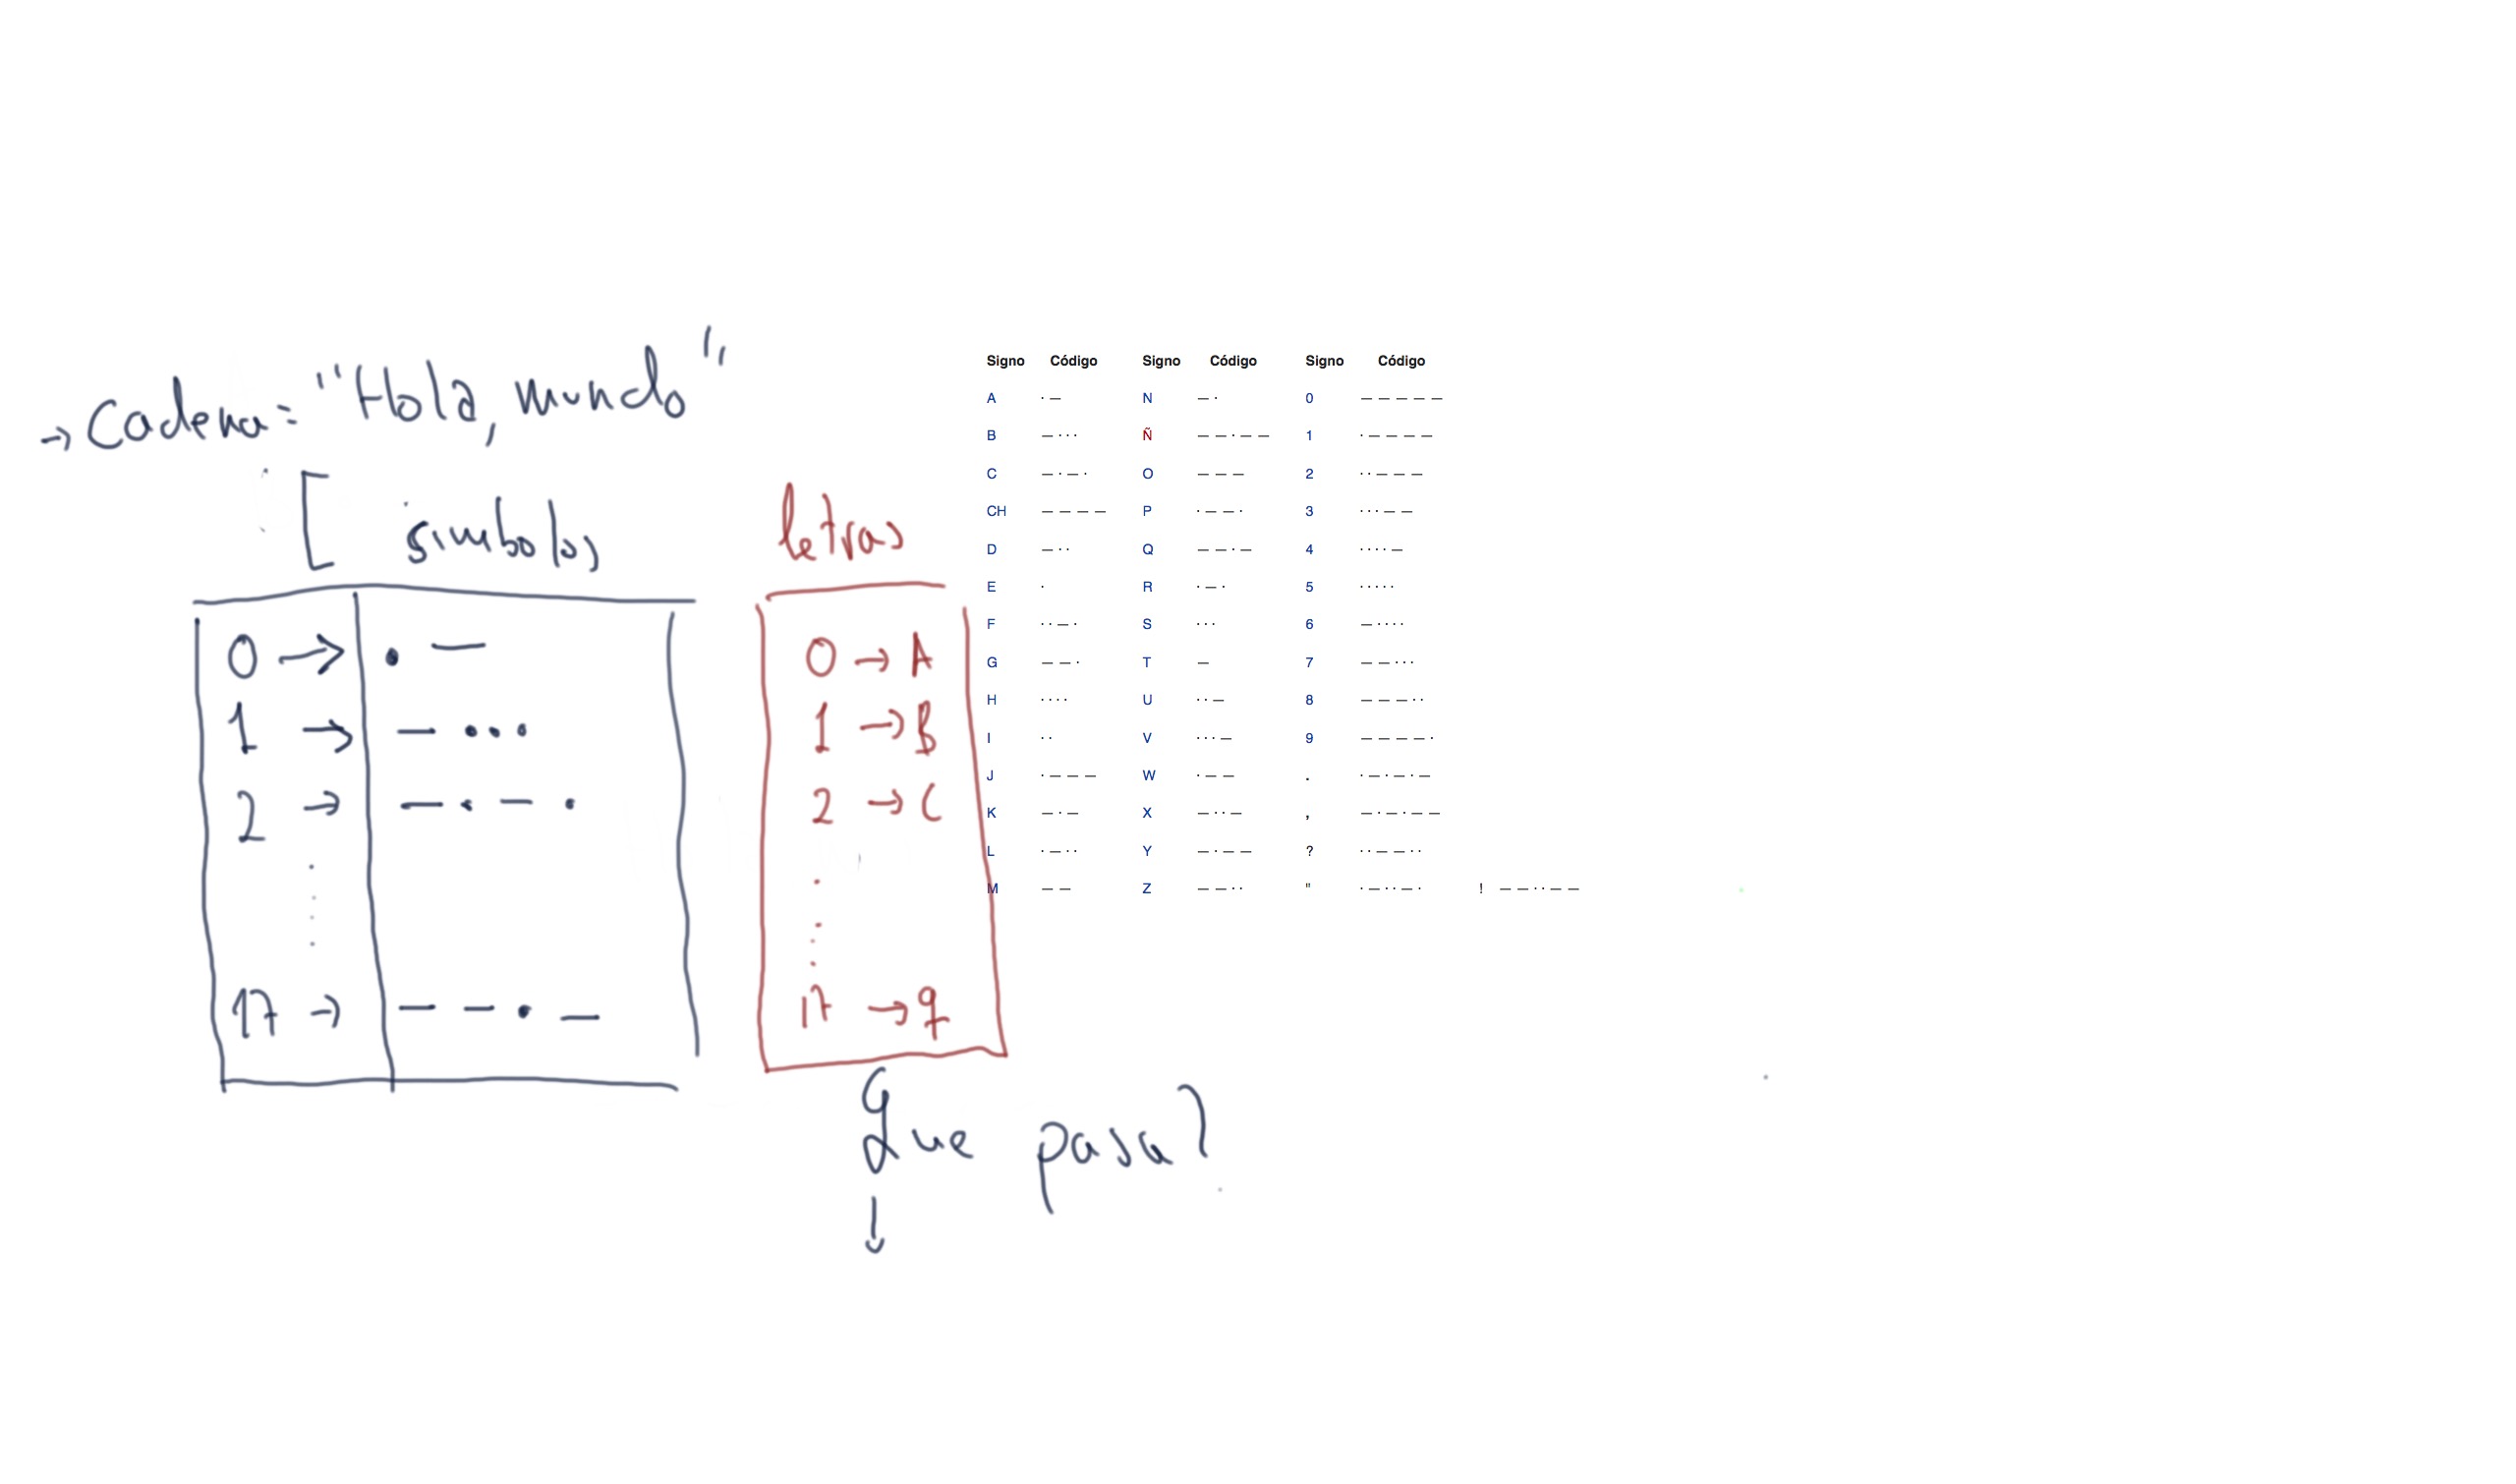 → Cadena = "Hola, mundo"
[ simbolos
0 → · —
1 → — · · ·
2 → — · — ·
17 → — — · —
letras
0 → A
1 → B
2 → C
17 → q
Que pasa?
↓
Signo Código Signo Código Signo Código
A · — N — · 0 — — — — —
B — · · · Ñ — — · — — 1 · — — — —
C — · — · O — — — 2 · · — — —
CH — — — — P · — — · 3 · · · — —
D — · · Q — — · — 4 · · · · —
E · R · — · 5 · · · · ·
F · · — · S · · · 6 — · · · ·
G — — · T — 7 — — · · ·
H · · · · U · · — 8 — — — · ·
I · · V · · · — 9 — — — — ·
J · — — — W · — — . · — · — · —
K — · — X — · · — , — · — · — —
L · — · · Y — · — — ? · · — — · ·
M — — Z — — · · " · — · · — · ! — — · · — —